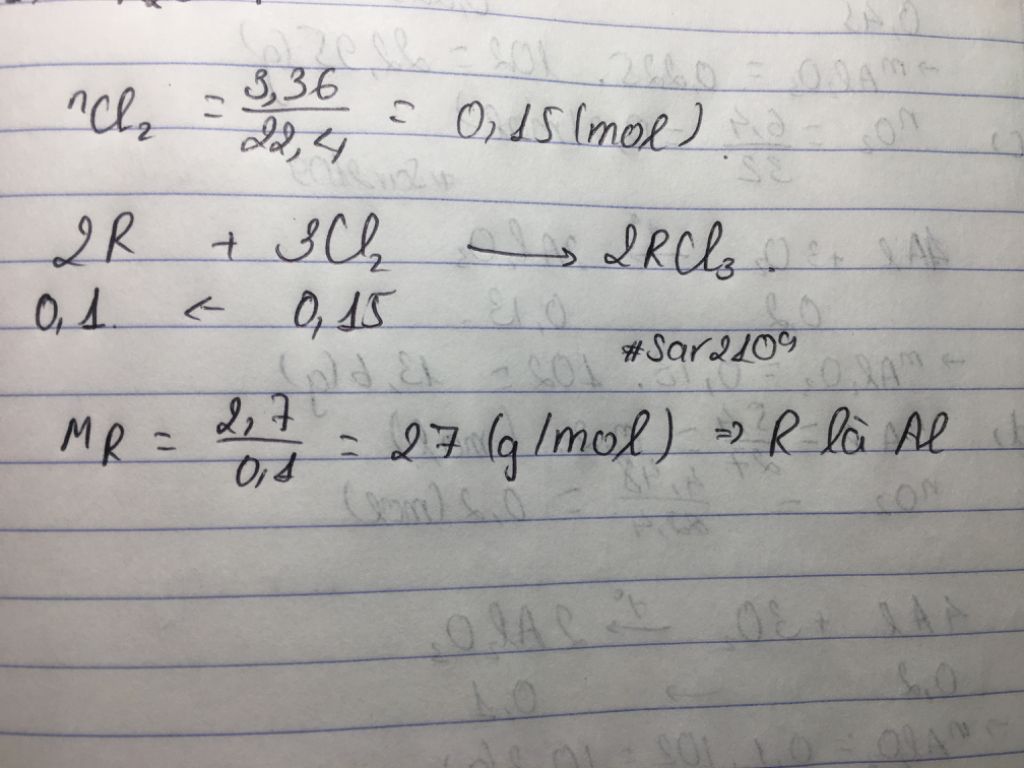 nCl₂ = 3,36/22,4 = 0,15 (mol).
2R + 3Cl₂ → 2RCl₃.
0,1. ← 0,15
#Sar2109
MR = 2,7/0,1 = 27 (g/mol) ⇒ R là Al